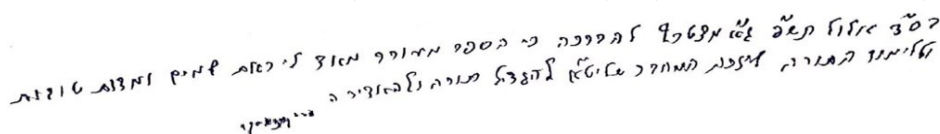 בס"ד אלול תש"פ גא"מ מצטרף להברכה כי הספר מעורר מאוד ליראת שמים ומדות טובות
ולימוד התורה ויזכה המחבר שליט"א להגדיל תורה ולהאדירה